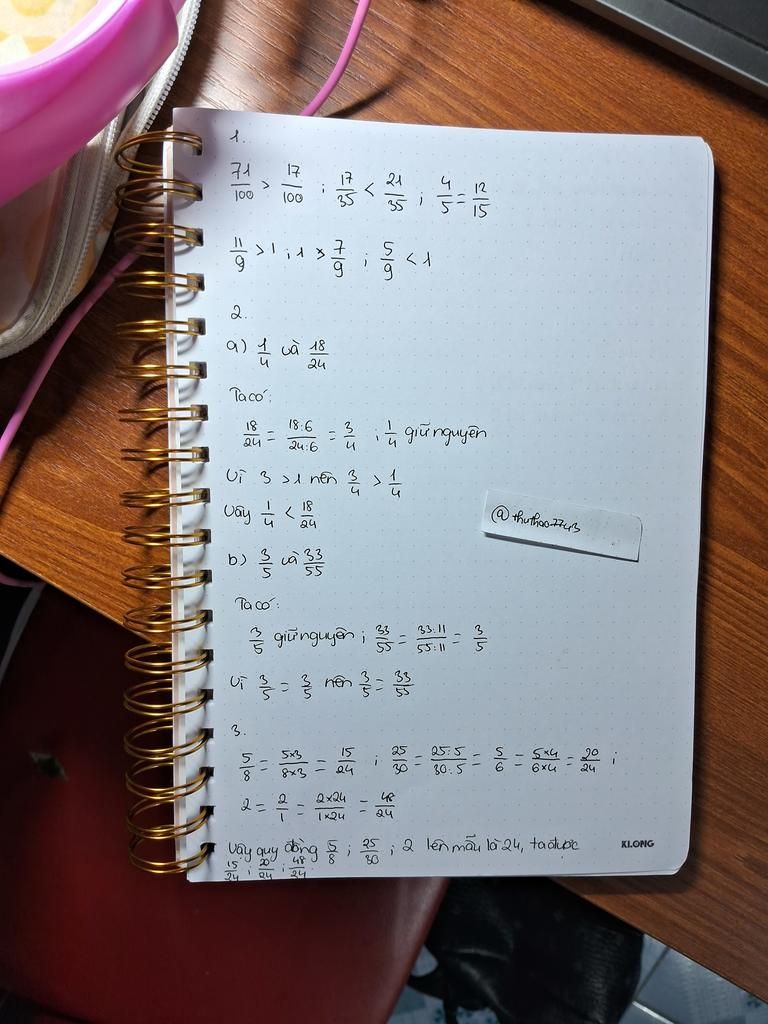 1.
71/100 > 17/100 ; 17/35 < 21/35 ; 4/5 = 12/15
11/9 > 1 ; 1 > 7/9 ; 5/9 < 1
2.
a) 1/4 và 18/24
Ta có:
18/24 = 18:6/24:6 = 3/4 ; 1/4 giữ nguyên
Vì 3 > 1 nên 3/4 > 1/4
Vậy 1/4 < 18/24
@thuthao7743
b) 3/5 và 33/55
Ta có:
3/5 giữ nguyên ; 33/55 = 33:11/55:11 = 3/5
Vì 3/5 = 3/5 nên 3/5 = 33/55
3.
5/8 = 5×3/8×3 = 15/24 ; 25/30 = 25:5/30:5 = 5/6 = 5×4/6×4 = 20/24 ;
2 = 2/1 = 2×24/1×24 = 48/24
Vậy quy đồng 5/8 ; 25/30 ; 2 lên mẫu là 24, ta được
15/24 ; 20/24 ; 48/24
KLONG